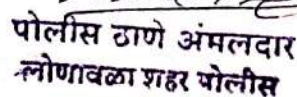 पोलीस ठाणे अंमलदार
लोणावळा शहर पोलीस